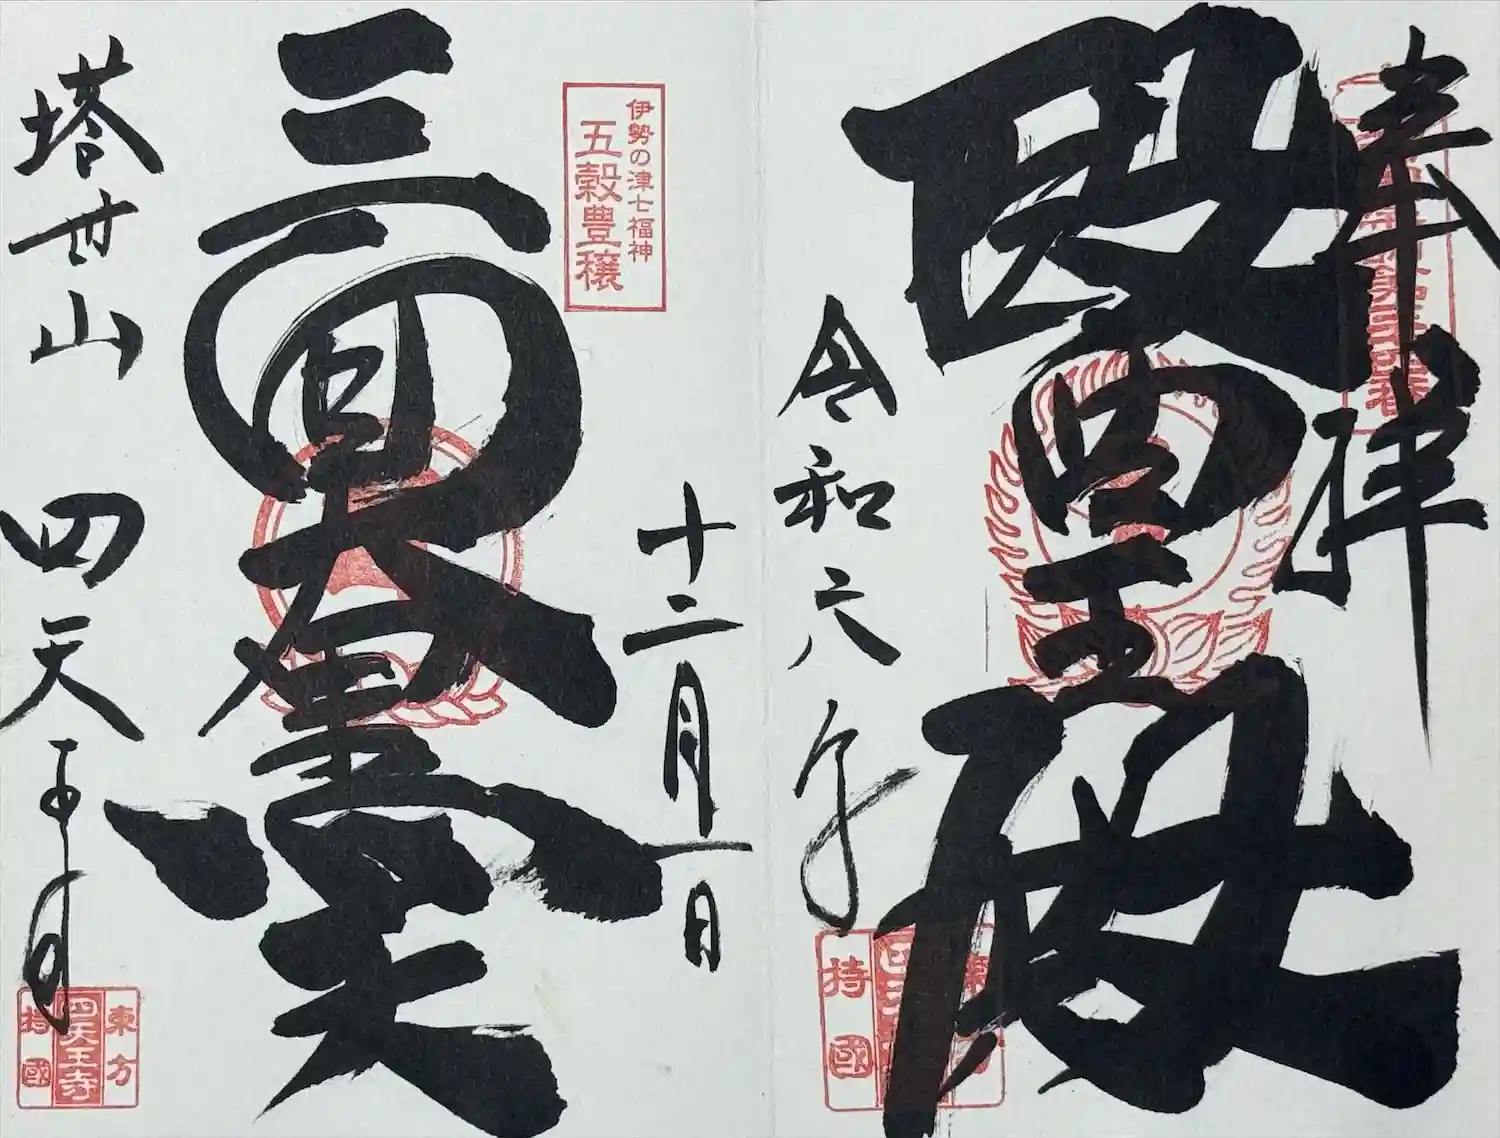 奉拝
醫王殿
令和六年
十二月一日
伊勢の津七福神
五穀豊穣
三面大黒天
塔世山 四天王寺
東方
四天王寺
持國
持國